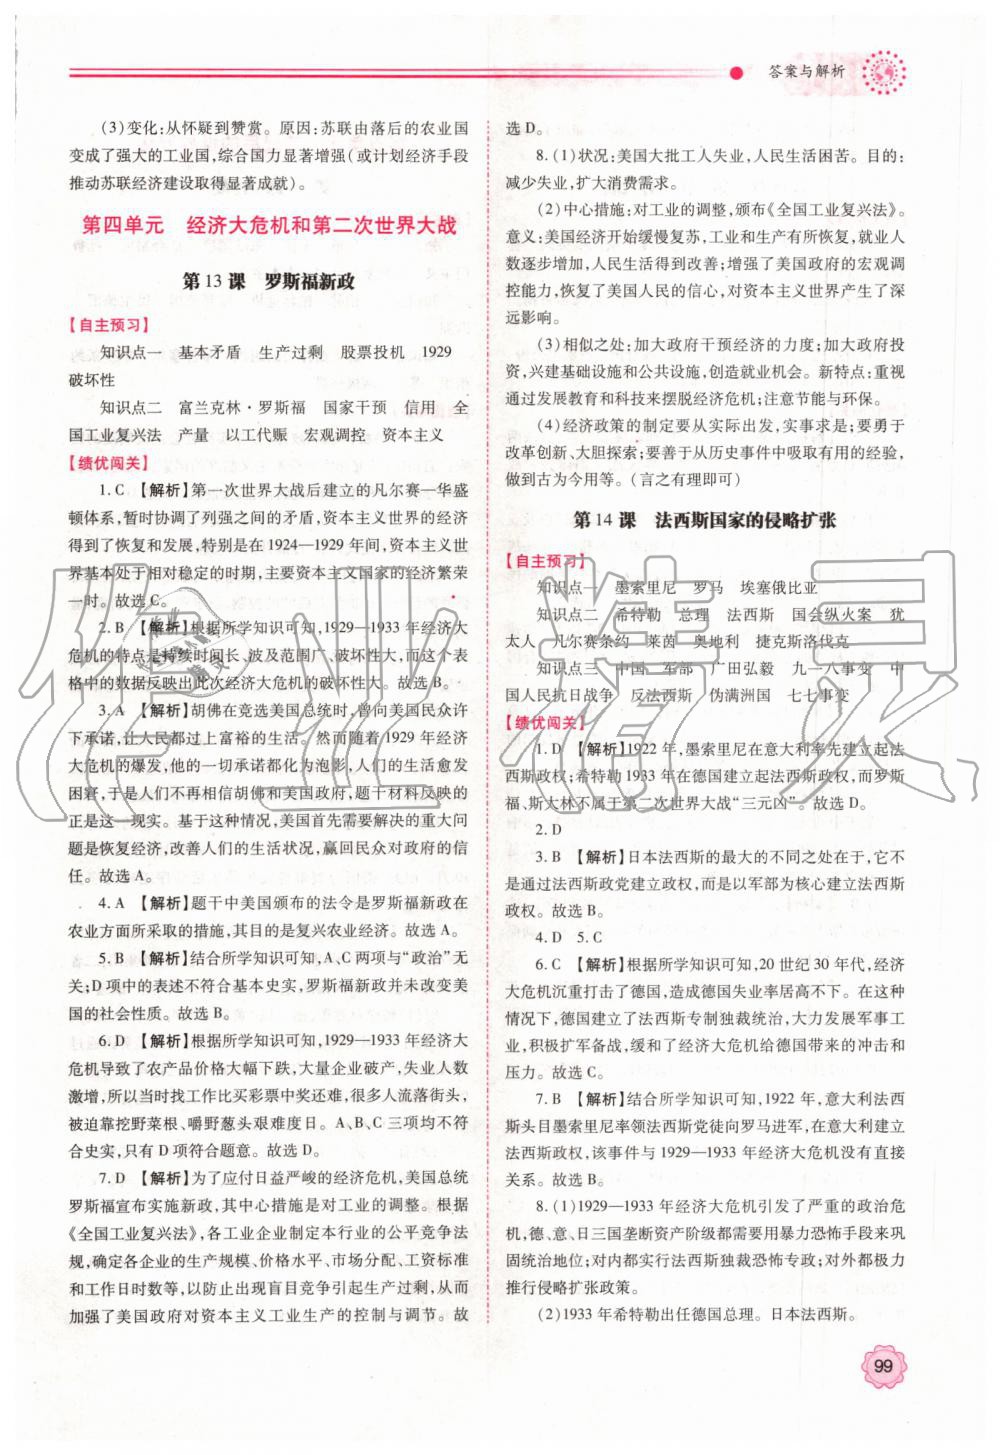 答案与解析
(3)变化:从怀疑到赞赏。原因:苏联由落后的农业国
变成了强大的工业国,综合国力显著增强(或计划经济手段
推动苏联经济建设取得显著成就)。
第四单元 经济大危机和第二次世界大战
第 13 课 罗斯福新政
【自主预习】
知识点一 基本矛盾 生产过剩 股票投机 1929
破坏性
知识点二 富兰克林·罗斯福 国家干预 信用 全
国工业复兴法 产量 以工代赈 宏观调控 资本主义
【绩优闯关】
1.C 【解析】第一次世界大战后建立的凡尔赛—华盛
顿体系,暂时协调了列强之间的矛盾,资本主义世界的经济
得到了恢复和发展,特别是在 1924—1929 年间,资本主义世
界基本处于相对稳定的时期,主要资本主义国家的经济繁荣
一时。故选 C。
2.B 【解析】根据所学知识可知,1929—1933 年经济大
危机的特点是持续时间长、波及范围广、破坏性大,而这个表
格中的数据反映出此次经济大危机的破坏性大。故选 B。
3.A 【解析】胡佛在竞选美国总统时,曾向美国民众许
下承诺,让人民都过上富裕的生活。然而随着 1929 年经济
大危机的爆发,他的一切承诺都化为泡影,人们的生活愈发
困窘,于是人们不再相信胡佛和美国政府,题干材料反映的
正是这一现实。基于这种情况,美国首先需要解决的重大问
题是恢复经济,改善人们的生活状况,赢回民众对政府的信
任。故选 A。
4.A 【解析】题干中美国颁布的法令是罗斯福新政在
农业方面所采取的措施,其目的是复兴农业经济。故选 A。
5.B 【解析】结合所学知识可知,A、C 两项与“政治”无
关;D 项中的表述不符合基本史实,罗斯福新政并未改变美
国的社会性质。故选 B。
6.D 【解析】根据所学知识可知,1929—1933 年经济大
危机导致了农产品价格大幅下跌,大量企业破产,失业人数
激增,所以当时找工作比买彩票中奖还难,很多人流落街头,
被迫靠挖野菜根、嚼野葱头艰难度日。A、B、C 三项均不符
合史实,只有 D 项符合题意。故选 D。
7.D 【解析】为了应付日益严峻的经济危机,美国总统
罗斯福宣布实施新政,其中心措施是对工业的调整。根据
《全国工业复兴法》,各工业企业制定本行业的公平竞争法
规,确定各企业的生产规模、价格水平、市场分配、工资标准
和工作日时数等,以防止出现盲目竞争引起生产过剩,从而
加强了美国政府对资本主义工业生产的控制与调节。故
选 D。
8.(1)状况:美国大批工人失业,人民生活困苦。目的:
减少失业,扩大消费需求。
(2)中心措施:对工业的调整,颁布《全国工业复兴法》。
意义:美国经济开始缓慢复苏,工业和生产有所恢复,就业人
数逐步增加,人民生活得到改善;增强了美国政府的宏观调
控能力,恢复了美国人民的信心,对资本主义世界产生了深
远影响。
(3)相似之处:加大政府干预经济的力度;加大政府投
资,兴建基础设施和公共设施,创造就业机会。新特点:重视
通过发展教育和科技来摆脱经济危机;注意节能与环保。
(4)经济政策的制定要从实际出发,实事求是;要勇于
改革创新、大胆探索;要善于从历史事件中吸取有用的经验,
做到古为今用等。(言之有理即可)
第 14 课 法西斯国家的侵略扩张
【自主预习】
知识点一 墨索里尼 罗马 埃塞俄比亚
知识点二 希特勒 总理 法西斯 国会纵火案 犹
太人 凡尔赛条约 莱茵 奥地利 捷克斯洛伐克
知识点三 中国 军部 广田弘毅 九一八事变 中
国人民抗日战争 反法西斯 伪满洲国 七七事变
【绩优闯关】
1.D 【解析】1922 年,墨索里尼在意大利率先建立起法
西斯政权;希特勒 1933 年在德国建立起法西斯政权,而罗斯
福、斯大林不属于第二次世界大战“三元凶”。故选 D。
2.D
3.B 【解析】日本法西斯的最大的不同之处在于,它不
是通过法西斯政党建立政权,而是以军部为核心建立法西斯
政权。故选 B。
4.D 5.C
6.C 【解析】根据所学知识可知,20 世纪 30 年代,经济
大危机沉重打击了德国,造成德国失业率居高不下。在这种
情况下,德国建立了法西斯专制独裁统治,大力发展军事工
业,积极扩军备战,缓和了经济大危机给德国带来的冲击和
压力。故选 C。
7.B 【解析】结合所学知识可知,1922 年,意大利法西
斯头目墨索里尼率领法西斯党徒向罗马进军,在意大利建立
法西斯政权,该事件与 1929—1933 年经济大危机没有直接
关系。故选 B。
8.(1)1929—1933 年经济大危机引发了严重的政治危
机,德、意、日三国垄断资产阶级都需要用暴力恐怖手段来巩
固统治地位;对内都实行法西斯独裁恐怖专政;对外都极力
推行侵略扩张政策。
(2)1933 年希特勒出任德国总理。日本法西斯。
99
作业精灵